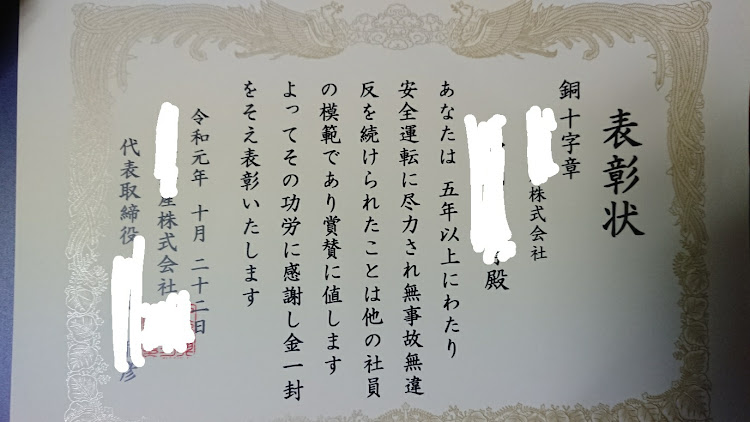 表彰状
銅十字章
株式会社
殿
あなたは 五年以上にわたり
安全運転に尽力され無事故無違
反を続けられたことは他の社員
の模範であり賞賛に値します
よってその功労に感謝し金一封
をそえ表彰いたします
令和元年 十月 二十二日
産株式会社
代表取締役 彦